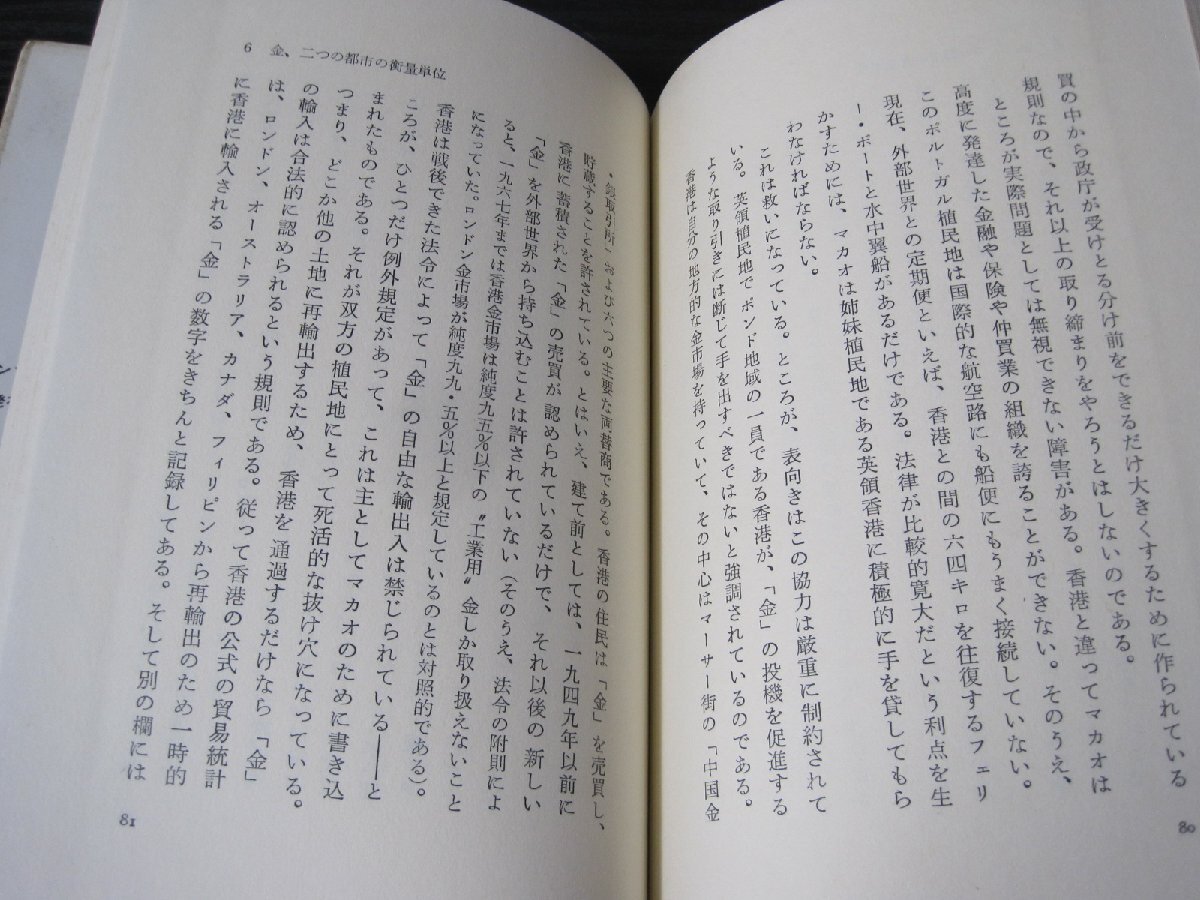 買の中から政庁が受けとる分け前をできるだけ大きくするために作られている
規則なので、それ以上の取り締まりをやろうとはしないのである。
ところが実際問題としては無視できない障害がある。香港と違ってマカオは
高度に発達した金融や保険や仲買業の組織を誇ることができない。そのうえ、
このポルトガル植民地は国際的な航空路にも船便にもうまく接続していない。
現在、外部世界との定期便といえば、香港との間の六四キロを往復するフェリ
ー・ボートと水中翼船があるだけである。法律が比較的寛大だという利点を生
かすためには、マカオは姉妹植民地である英領香港に積極的に手を貸してもら
わなければならない。
これは救いになっている。ところが、表向きはこの協力は厳重に制約されて
いる。英領植民地でポンド地域の一員である香港が、「金」の投機を促進する
ような取り引きには断じて手を出すべきではないと強調されているのである。
香港は自分の地方的な金市場を持っていて、その中心はマーサー街の「中国金
80
6 金、二つの都市の衡量単位
・銀取引所」および六つの主要な両替商である。香港の住民は「金」を売買し、
貯蔵することを許されている。とはいえ、建て前としては、一九四九年以前に
香港に蓄積された「金」の売買が認められているだけで、それ以後の新しい
「金」を外部世界から持ち込むことは許されていない(そのうえ、法令の附則によ
ると、一九六七年までは香港金市場は純度九五%以下の〝工業用〟金しか取り扱えないこと
になっていた。ロンドン金市場が純度九九・五%以上と規定しているのとは対照的である)。
香港は戦後できた法令によって「金」の自由な輸出入は禁じられている――と
ころが、ひとつだけ例外規定があって、これは主としてマカオのために書き込
まれたものである。それが双方の植民地にとって死活的な抜け穴になっている。
つまり、どこか他の土地に再輸出するため、香港を通過するだけなら「金」
の輸入は合法的に認められるという規則である。従って香港の公式の貿易統計
は、ロンドン、オーストラリア、カナダ、フィリピンから再輸出のため一時的
に香港に輸入される「金」の数字をきちんと記録してある。そして別の欄には
81